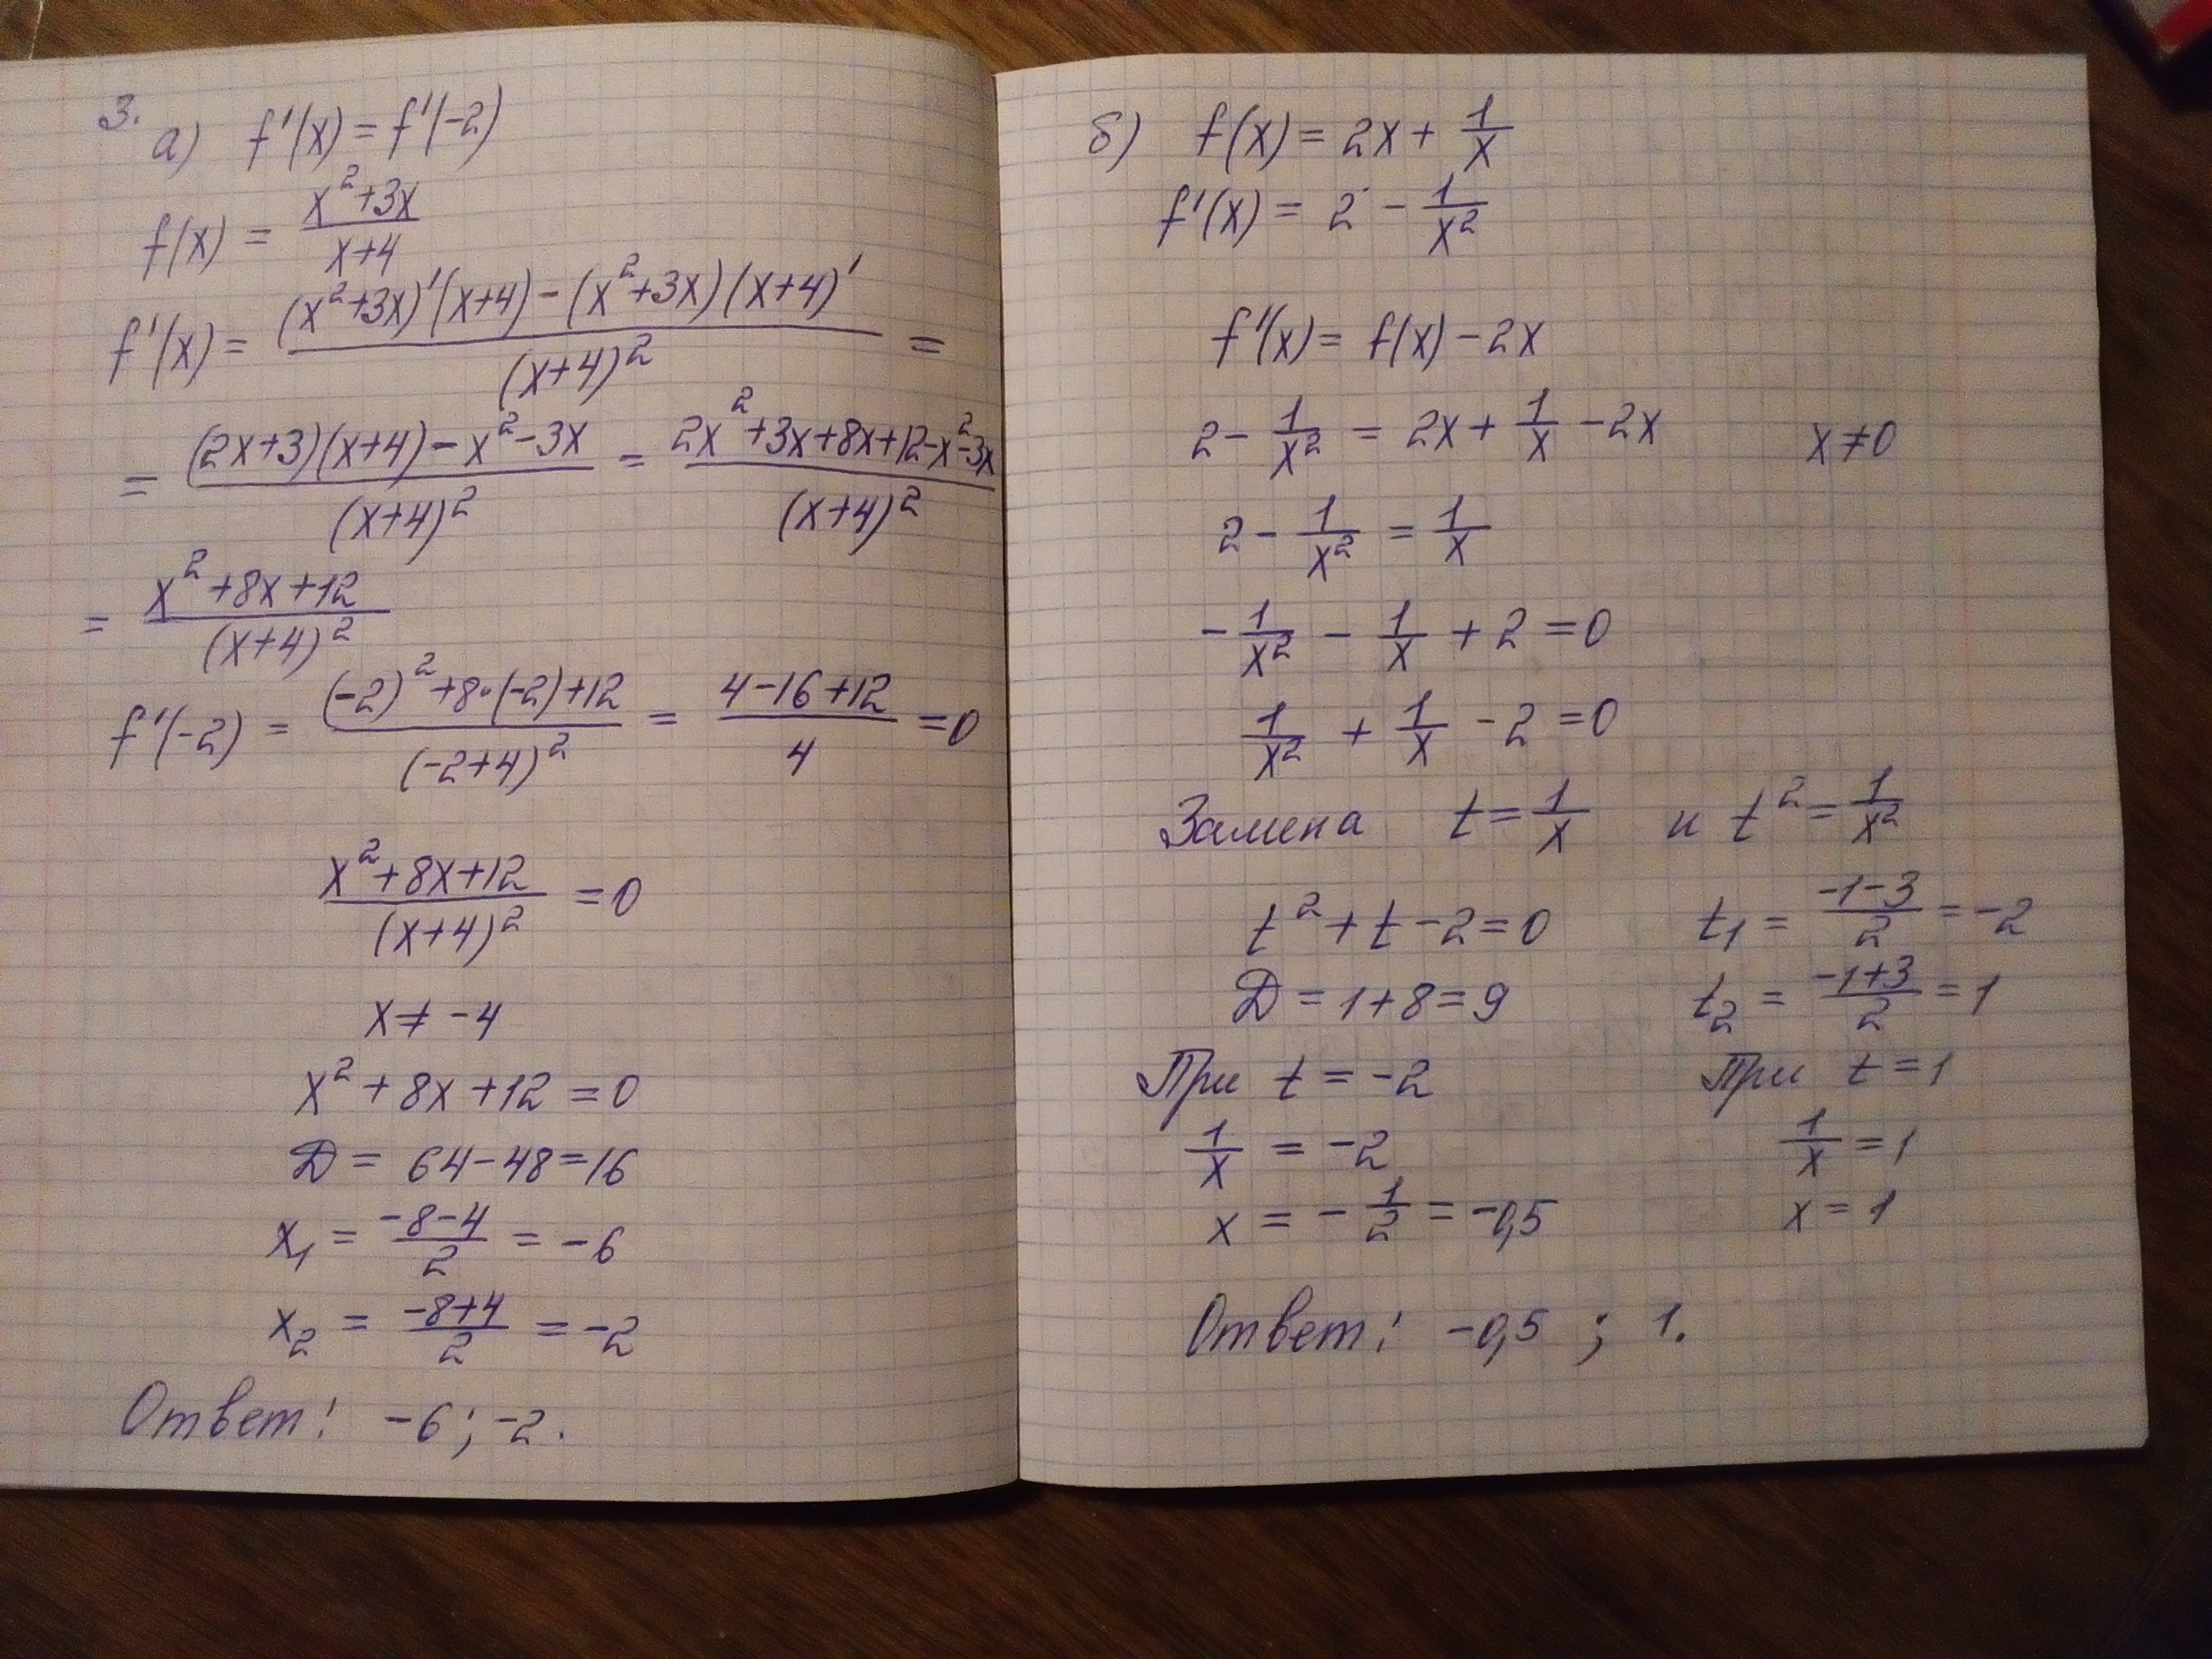 3. а) f'(x) = f'(-2)
f(x) = (x²+3x)/(x+4)
f'(x) = ((x²+3x)'(x+4) - (x²+3x)(x+4)')/(x+4)² =
= ((2x+3)(x+4) - x² - 3x)/(x+4)² = (2x²+3x+8x+12-x²-3x)/(x+4)²
= (x²+8x+12)/(x+4)²
f'(-2) = ((-2)²+8·(-2)+12)/(-2+4)² = (4-16+12)/4 = 0
(x²+8x+12)/(x+4)² = 0
x ≠ -4
x² + 8x + 12 = 0
Д = 64-48=16
x₁ = (-8-4)/2 = -6
x₂ = (-8+4)/2 = -2
Ответ: -6; -2.
б) f(x) = 2x + 1/x
f'(x) = 2 - 1/x²
f'(x) = f(x) - 2x
2 - 1/x² = 2x + 1/x - 2x x ≠ 0
2 - 1/x² = 1/x
- 1/x² - 1/x + 2 = 0
1/x² + 1/x - 2 = 0
Замена t = 1/x и t² = 1/x²
t² + t - 2 = 0 t₁ = (-1-3)/2 = -2
Д = 1+8 = 9 t₂ = (-1+3)/2 = 1
При t = -2 При t = 1
1/x = -2 1/x = 1
x = - 1/2 = -0,5 x = 1
Ответ: -0,5 ; 1.